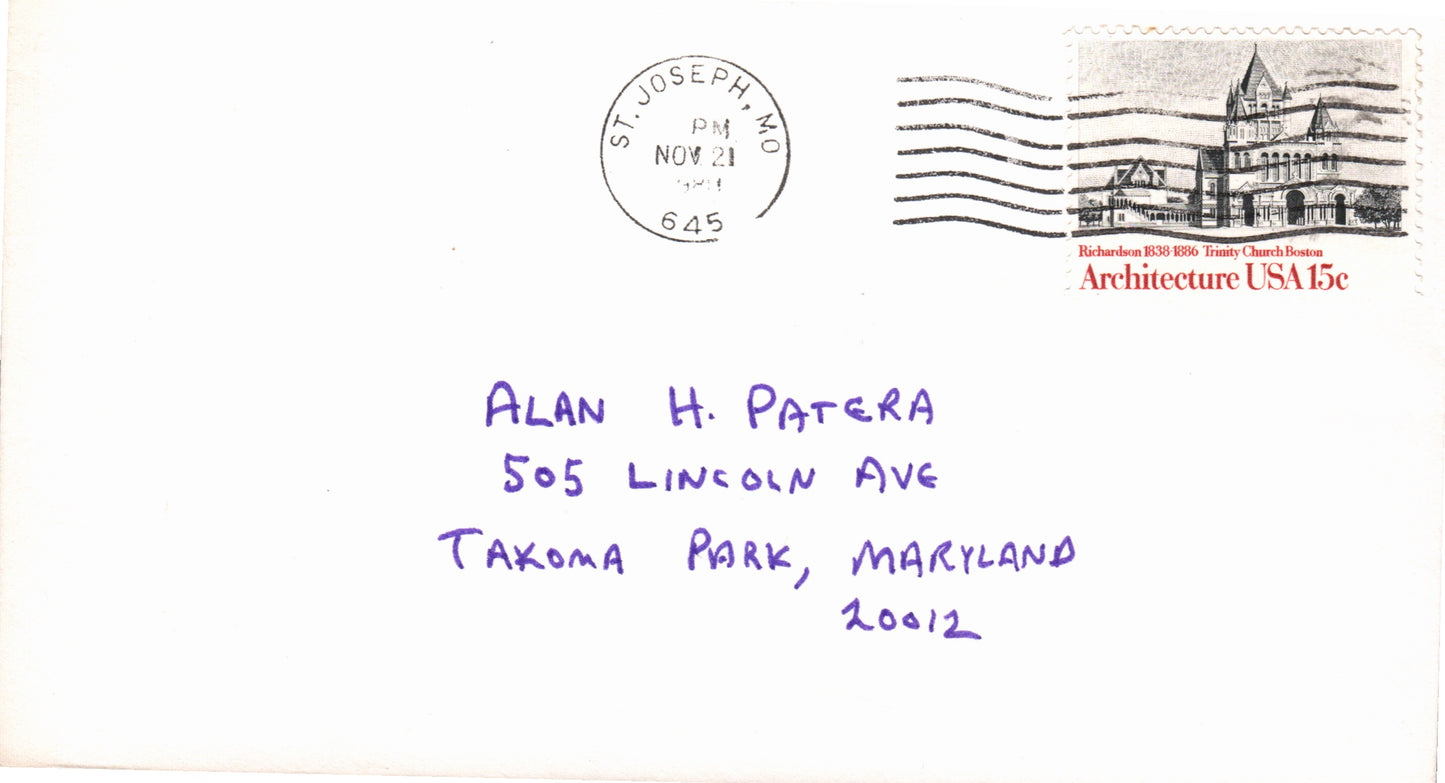 ST. JOSEPH, MO
PM
NOV 21
645
Richardson 1838-1886 Trinity Church Boston
Architecture USA 15c
ALAN H. PATERA
505 LINCOLN AVE
TAKOMA PARK, MARYLAND
20012